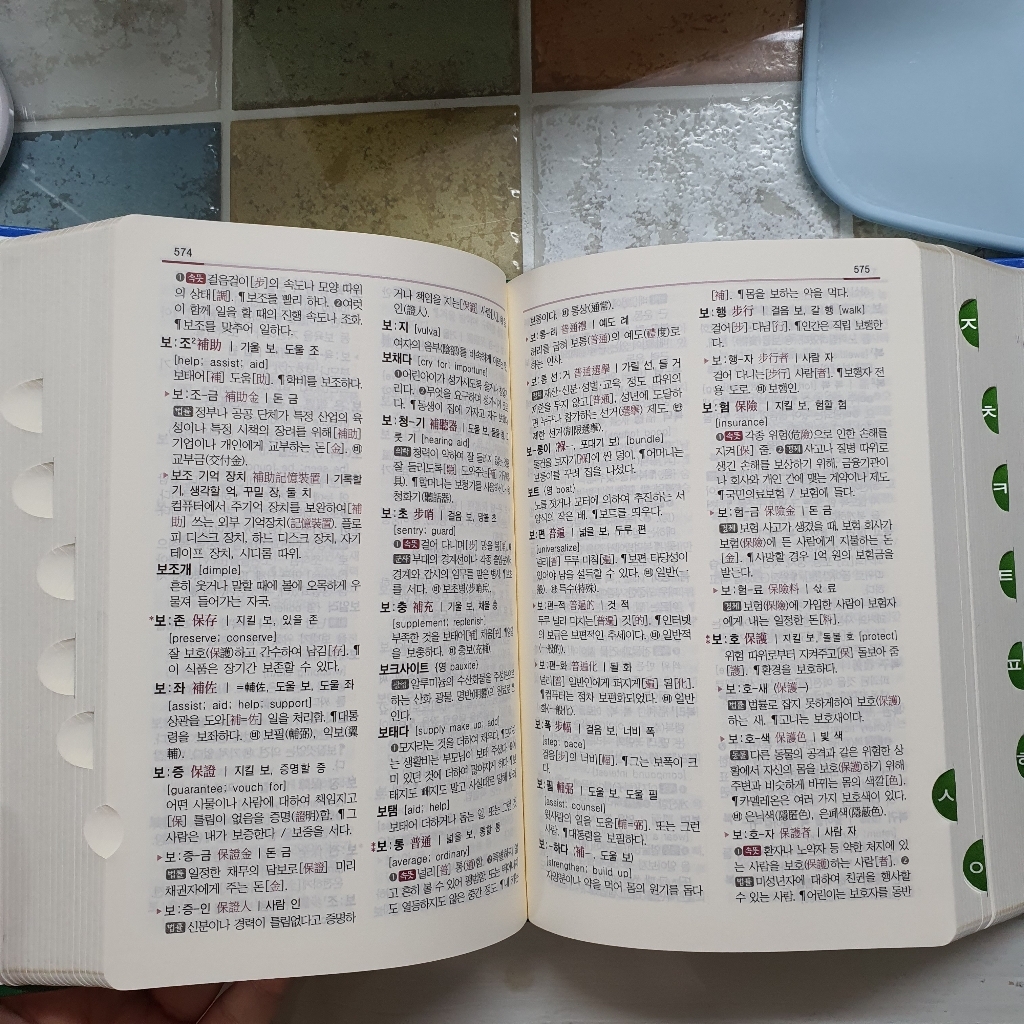 574
❶속뜻걸음걸이[步]의 속도나 모양 따위
의 상태[調]. ¶보조를 빨리 하다. ❷여럿
이 함께 일을 할 때의 진행 속도나 조화.
¶보조를 맞추어 일하다.
보:조² 補助 | 기울 보, 도울 조
[help; assist; aid]
보태어[補] 도움[助]. ¶학비를 보조하다.
▸보:조-금 補助金 | 돈 금
법률 정부나 공공 단체가 특정 산업의 육
성이나 특정 시책의 장려를 위해[補助]
기업이나 개인에게 교부하는 돈[金]. ㉥
교부금(交付金).
▸보조 기억 장치 補助記憶裝置 | 기록할
기, 생각할 억, 꾸밀 장, 둘 치
컴퓨터에서 주기억 장치를 보완하여[補
助] 쓰는 외부 기억장치(記憶裝置). 플로
피 디스크 장치, 하드 디스크 장치, 자기
테이프 장치, 시디롬 따위.
보조개 [dimple]
흔히 웃거나 말할 때에 볼에 오목하게 우
물져 들어가는 자국.
*보:존 保存 | 지킬 보, 있을 존
[preserve; conserve]
잘 보호(保護)하고 간수하여 남김[存]. ¶
이 식품은 장기간 보존할 수 있다.
보:좌 補佐 | =輔佐, 도울 보, 도울 좌
[assist; aid; help; support]
상관을 도와[補=佐] 일을 처리함. ¶대통
령을 보좌하다. ㉥보필(輔弼), 익보(翼
輔).
보:증 保證 | 지킬 보, 증명할 증
[guarantee; vouch for]
어떤 사물이나 사람에 대하여 책임지고
[保] 틀림이 없음을 증명(證明)함. ¶그
사람은 내가 보증한다 / 보증을 서다.
▸보:증-금 保證金 | 돈 금
법률 일정한 채무의 담보로[保證] 미리
채권자에게 주는 돈[金].
▸보:증-인 保證人 | 사람 인
법률 신분이나 경력이 틀림없다고 증명하
거나 책임을 지는[保證] 사람
인(證人).
보:지 [vulva]
여자의 음부(陰部)를 비속하게
보채다 [cry for; importune]
❶어린아이가 성가시게
리다. ❷무엇을 요구하며 성가시게
다. ¶동생이 집에 가자고
보:청-기 補聽器 | 도울 보, 들을
릇 기 [hearing aid]
의학 청력이 약하여 잘 들리지 않는
잘 들리도록[聽] 도와주는[補]
具]. ¶할머니는 보청기를
청화기(聽話器).
보:초 步哨 | 걸음 보, 망볼 초
[sentry; guard]
❶속뜻 걸어 다니며[步] 망을 봄
군사 부대의 경계선이나 각종
경계와 감시의 임무를 맡은 병사.
를 서다. ㉥보초병(步哨兵).
보:충 補充 | 기울 보, 채울 충
[supplement; replenish]
부족한 것을 보태어[補] 채움[充].
을 보충하다. ㉥충보(充補).
보크사이트 (영 bauxite)
광업 알루미늄의 수산화물을 주성분으로
하는 산화 광물. 명반(明礬)의 원료로
인다.
보태다 [supply; make up; add]
❶모자라는 것을 더하여 채우다.
는 생활비는 부모님이 보태 주셨다.
미 있던 것에 더하여 많아지게 하다.
태지도 빼지도 말고 사실대로
보탬 [aid; help]
보태어 더하거나 돕는 일. 또는 그런 것.
⁑보:통 普通 | 넓을 보, 통할 통
[average; ordinary]
❶속뜻 널리[普] 통(通)함.
고 흔히 볼 수 있어 평범함.
도 열등하지도 않은 중간 정도.
575
보통이다. ㉥통상(通常).
▸보:통-례 普通禮 | 예도 례
허리를 굽혀 보통(普通)의 예도(禮度)로
하는 인사.
▸보:통 선:거 普通選擧 | 가릴 선, 들 거
정치 재산·신분·성별·교육 정도 따위의
제한을 두지 않고[普通], 성년에 도달하
면 누구나 참가하는 선거(選擧) 제도.
제한 선거(制限選擧).
보-퉁이 (褓-, 포대기 보) [bundle]
물건을 보자기[褓]에 싼 덩이. ¶어머니는
보퉁이를 꾸려 집을 나섰다.
보트 (영 boat)
노를 젓거나 모터에 의하여 추진하는 서
양식의 작은 배. ¶보트를 띄우다.
보:편 普遍 | 넓을 보, 두루 편
[universalize]
널리[普] 두루 미침[遍]. ¶보편 타당성이
있어야 남을 설득할 수 있다. ㉥일반(一
般). ㉫특수(特殊).
▸보:편-적 普遍的 | 것 적
두루 널리 미치는[普遍] 것[的]. ¶인터넷
의 보급은 보편적인 추세이다. ㉥일반적
(一般的).
▸보:편-화 普遍化 | 될 화
널리[普] 일반인에게 퍼지게[遍] 됨[化].
¶컴퓨터는 점차 보편화되었다. ㉥일반
화(一般化).
보:폭 步幅 | 걸음 보, 너비 폭
[step; pace]
걸음[步]의 너비[幅]. ¶그는 보폭이 크
다.
보:필 輔弼 | 도울 보, 도울 필
[assist; counsel]
윗사람의 일을 도움[輔=弼]. 또는 그런
사람. ¶대통령을 보필하다.
보:-하다 (補-, 도울 보)
[strengthen; build up]
자양분이나 약을 먹어 몸의 원기를 돕다
[補]. ¶몸을 보하는 약을 먹다.
보:행 步行 | 걸음 보, 갈 행 [walk]
걸어[步] 다님[行]. ¶인간은 직립 보행한
다.
▸보:행-자 步行者 | 사람 자
걸어 다니는[步行] 사람[者]. ¶보행자 전
용 도로. ㉥보행인.
보:험 保險 | 지킬 보, 험할 험
[insurance]
❶속뜻 각종 위험(危險)으로 인한 손해를
지켜[保] 줌. ❷경제 사고나 질병 따위로
생긴 손해를 보상하기 위해, 금융기관이
나 회사와 개인 간에 맺는 계약이나 제도.
¶국민의료보험 / 보험에 들다.
▸보:험-금 保險金 | 돈 금
경제 보험 사고가 생겼을 때, 보험 회사가
보험(保險)에 든 사람에게 지불하는 돈
[金]. ¶사망할 경우 1억 원의 보험금을
받는다.
▸보:험-료 保險料 | 삯 료
경제 보험(保險)에 가입한 사람이 보험자
에게 내는 일정한 돈[料].
⁑보:호 保護 | 지킬 보, 돌볼 호 [protect]
위험 따위로부터 지켜주고[保] 돌보아 줌
[護]. ¶환경을 보호하다.
▸보:호-새 (保護-)
법률 법률로 잡지 못하게하여 보호(保護)
하는 새. ¶고니는 보호새이다.
▸보:호-색 保護色 | 빛 색
동물 다른 동물의 공격과 같은 위험한 상
황에서 자신의 몸을 보호(保護)하기 위해
주변과 비슷하게 바뀌는 몸의 색깔[色].
¶카멜레온은 여러 가지 보호색이 있다.
㉥은닉색(隱匿色), 은폐색(隱蔽色).
▸보:호-자 保護者 | 사람 자
❶속뜻 환자나 노약자 등 약한 처지에 있
는 사람을 보호(保護)하는 사람[者]. ❷
법률 미성년자에 대하여 친권을 행사할
수 있는 사람. ¶어린이는 보호자를 동반
ㅈ
ㅊ
ㅋ
ㅌ
ㅍ
ㅎ
ㅅ
ㅇ